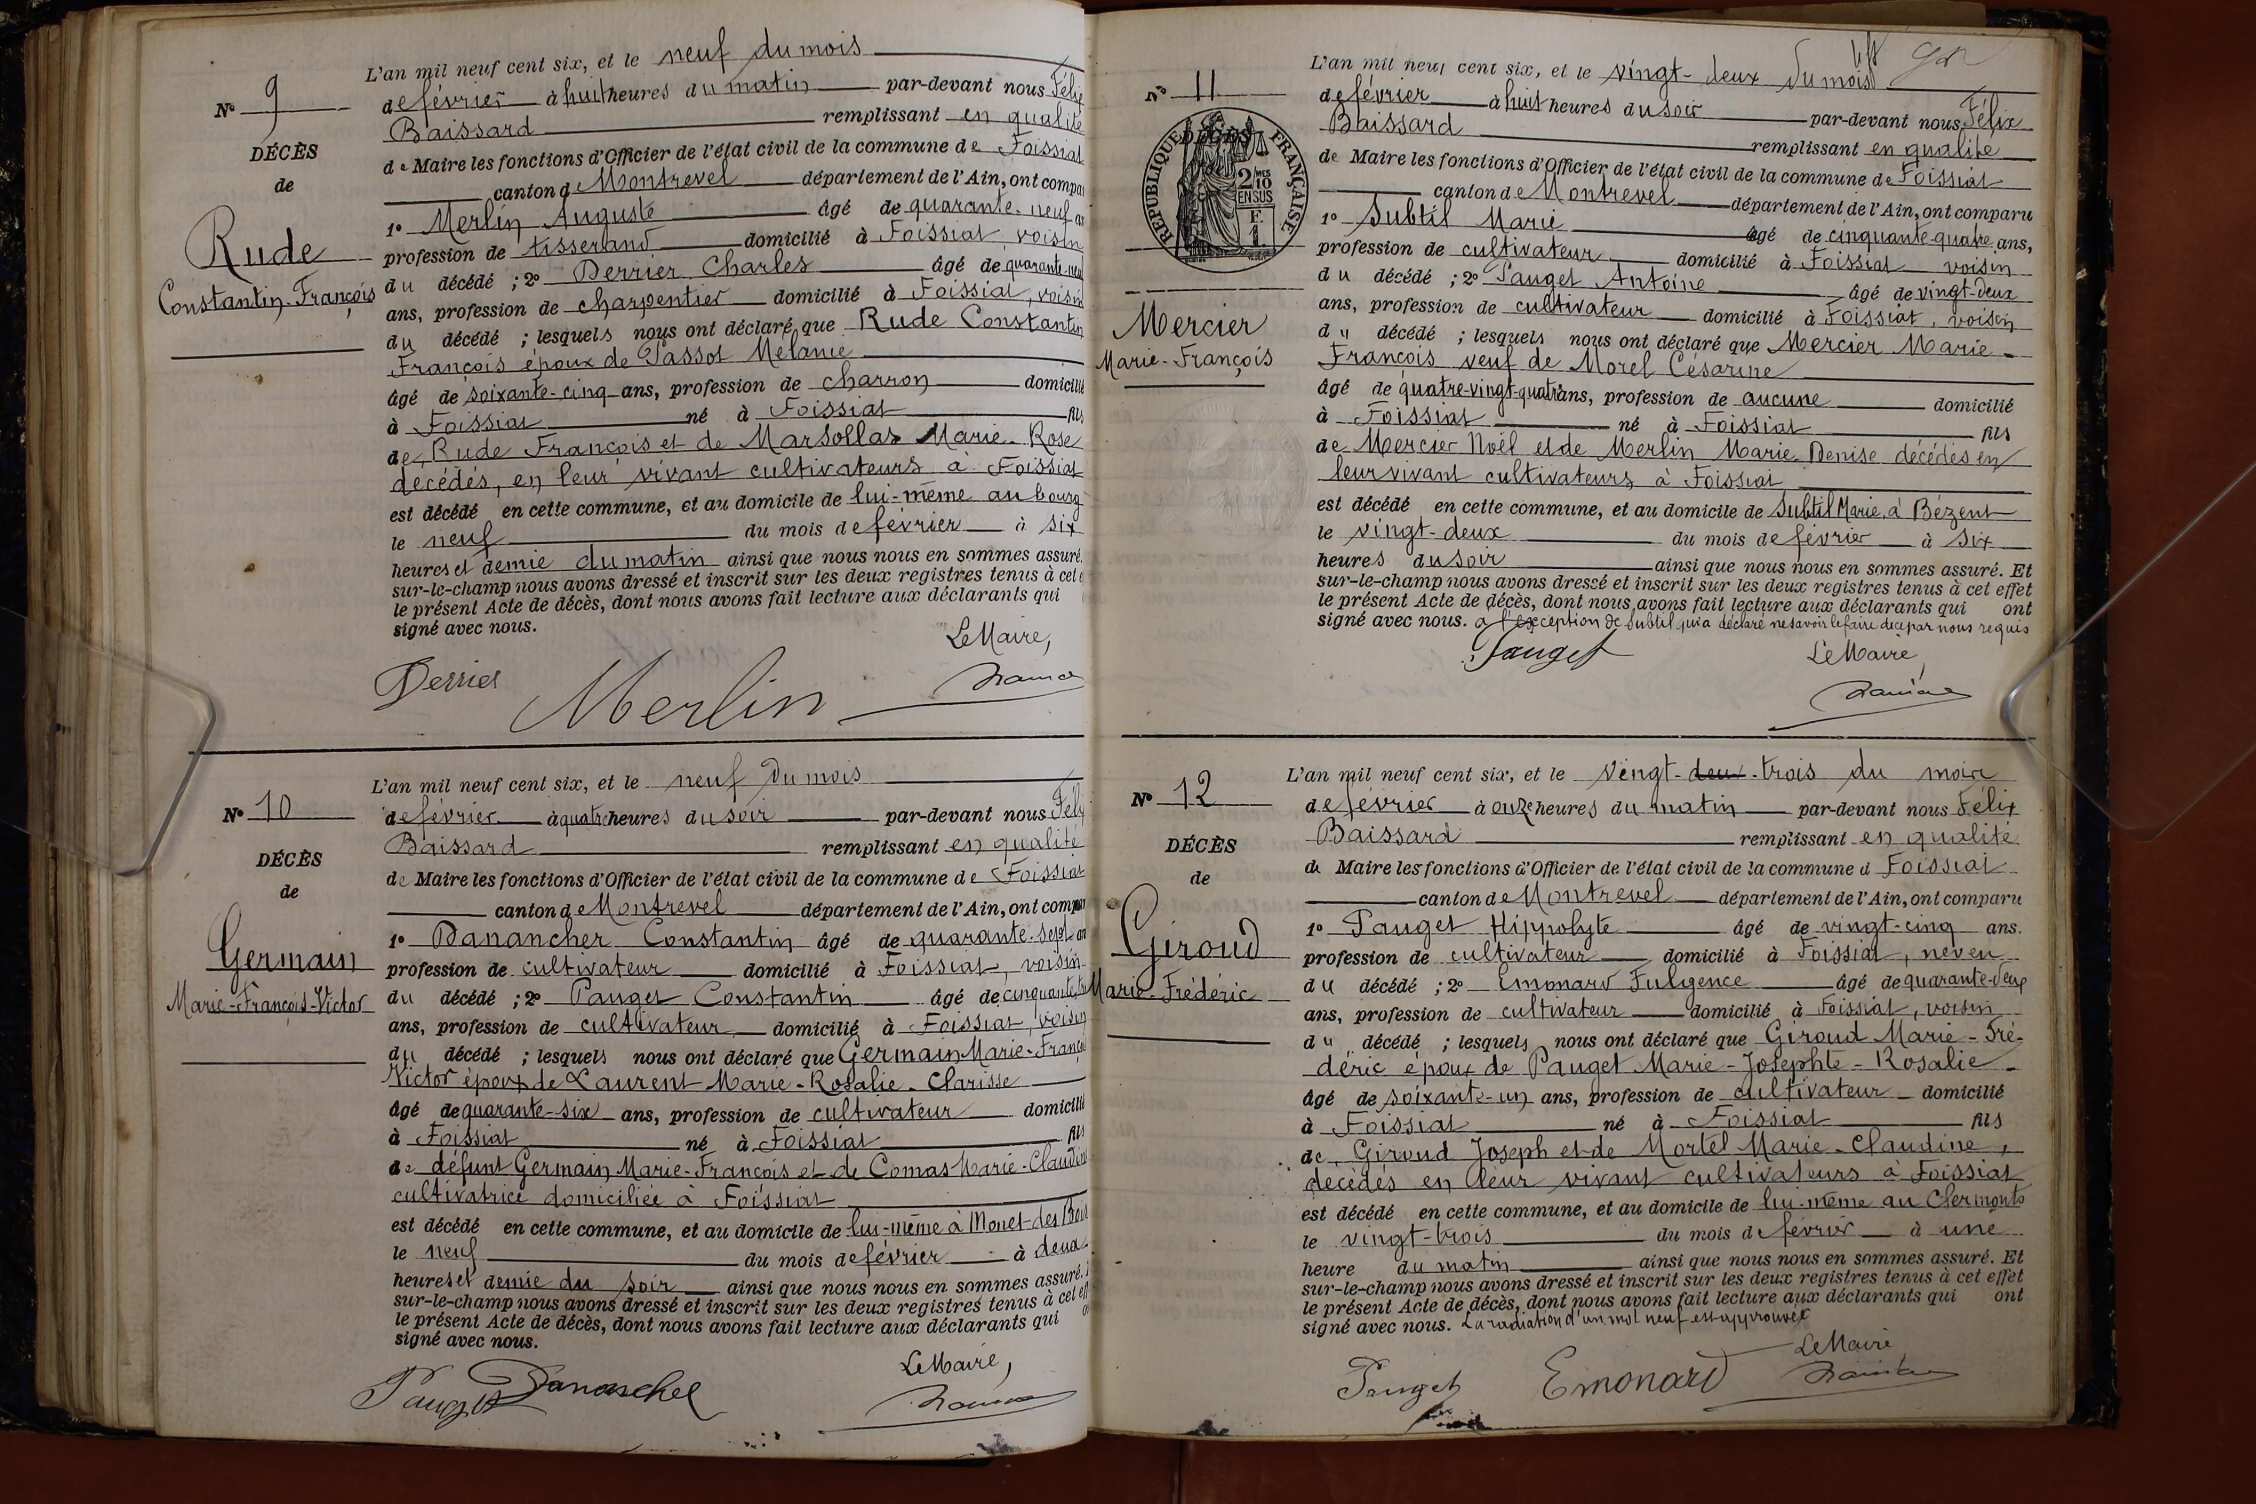 N° 9
DÉCÈS
de
Rude
Constantin-François
L'an mil neuf cent six, et le neuf du mois
de février à huit heures du matin par-devant nous Félix
Baissard remplissant en qualité
de Maire les fonctions d'Officier de l'état civil de la commune de Foissiat
canton de Montrevel département de l'Ain, ont compa
1° Merlin Auguste âgé de quarante-neuf an
profession de tisserand domicilié à Foissiat, voisin
du décédé ; 2° Derrier Charles âgé de quarante-neuf
ans, profession de charpentier domicilié à Foissiat, voisin
du décédé ; lesquels nous ont déclaré que Rude Constantin
François époux de Passot Mélanie
âgé de soixante-cinq ans, profession de charron domicilié
à Foissiat né à Foissiat fils
de Rude François et de Marsollas Marie-Rose
décédés, en leur vivant cultivateurs à Foissiat
est décédé en cette commune, et au domicile de lui-même au bourg
le neuf du mois de février à six
heures et demie du matin ainsi que nous nous en sommes assuré.
sur-le-champ nous avons dressé et inscrit sur les deux registres tenus à cet e
le présent Acte de décès, dont nous avons fait lecture aux déclarants qui
signé avec nous.
Le Maire,
Derrier
Merlin
N° 10
DÉCÈS
de
Germain
Marie-François-Victor
L'an mil neuf cent six, et le neuf du mois
de février à quatre heures du soir par-devant nous Félix
Baissard remplissant en qualité
de Maire les fonctions d'Officier de l'état civil de la commune de Foissiat
canton de Montrevel département de l'Ain, ont compar
1° Danancher Constantin âgé de quarante-sept an
profession de cultivateur domicilié à Foissiat, voisin
du décédé ; 2° Pauget Constantin âgé de cinquante
ans, profession de cultivateur domicilié à Foissiat, voisin
du décédé ; lesquels nous ont déclaré que Germain Marie-Franço
Victor époux de Laurent Marie-Rosalie-Clarisse
âgé de quarante-six ans, profession de cultivateur domicilié
à Foissiat né à Foissiat fils
de défunt Germain Marie-François et de Comas Marie-Claudine
cultivatrice domiciliée à Foissiat
est décédé en cette commune, et au domicile de lui-même à Monet-des-Bois
le neuf du mois de février à deux
heures et demie du soir ainsi que nous nous en sommes assuré.
sur-le-champ nous avons dressé et inscrit sur les deux registres tenus à cet eff
le présent Acte de décès, dont nous avons fait lecture aux déclarants qui o
signé avec nous.
Le Maire,
Pauget Danancher
N° 11
DÉCÈS
RÉPUBLIQUE FRANÇAISE
2 MES
10
EN SUS
F.
1.
Mercier
Marie-François
L'an mil neuf cent six, et le vingt-deux du mois
de février à huit heures du soir par-devant nous Félix
Baissard remplissant en qualité
de Maire les fonctions d'Officier de l'état civil de la commune de Foissiat
canton de Montrevel département de l'Ain, ont comparu
1° Subtil Marie âgé de cinquante-quatre ans,
profession de cultivateur domicilié à Foissiat voisin
du décédé ; 2° Pauget Antoine âgé de vingt-deux
ans, profession de cultivateur domicilié à Foissiat, voisin
du décédé ; lesquels nous ont déclaré que Mercier Marie-
François veuf de Morel Césarine
âgé de quatre-vingt-quatre ans, profession de aucune domicilié
à Foissiat né à Foissiat fils
de Mercier Noël et de Merlin Marie-Denise décédés en
leur vivant cultivateurs à Foissiat
est décédé en cette commune, et au domicile de Subtil Marie, à Bézent
le vingt-deux du mois de février à six
heures du soir ainsi que nous nous en sommes assuré. Et
sur-le-champ nous avons dressé et inscrit sur les deux registres tenus à cet effet
le présent Acte de décès, dont nous avons fait lecture aux déclarants qui ont
signé avec nous. à l'exception de Subtil qui a déclaré ne savoir le faire de ce par nous requis
Pauget
Le Maire,
N° 12
DÉCÈS
de
Giroud
Marie-Frédéric
L'an mil neuf cent six, et le vingt-deux-trois du mois
de février à onze heures du matin par-devant nous Félix
Baissard remplissant en qualité
de Maire les fonctions d'Officier de l'état civil de la commune d Foissiat
canton de Montrevel département de l'Ain, ont comparu
1° Pauget Hippolyte âgé de vingt-cinq ans.
profession de cultivateur domicilié à Foissiat, neveu
du décédé ; 2° Emonard Fulgence âgé de quarante-deux
ans, profession de cultivateur domicilié à Foissiat, voisin
du décédé ; lesquels nous ont déclaré que Giroud Marie-Fré-
déric époux de Pauget Marie-Josephte-Rosalie
âgé de soixante-un ans, profession de cultivateur domicilié
à Foissiat né à Foissiat fils
de Giroud Joseph et de Mortel Marie-Claudine,
décédés en leur vivant cultivateurs à Foissiat
est décédé en cette commune, et au domicile de lui-même au Clermonts
le vingt-trois du mois de février à une
heure du matin ainsi que nous nous en sommes assuré. Et
sur-le-champ nous avons dressé et inscrit sur les deux registres tenus à cet effet
le présent Acte de décès, dont nous avons fait lecture aux déclarants qui ont
signé avec nous. La radiation d'un mot neuf est approuvée
Le Maire
Pauget
Emonard